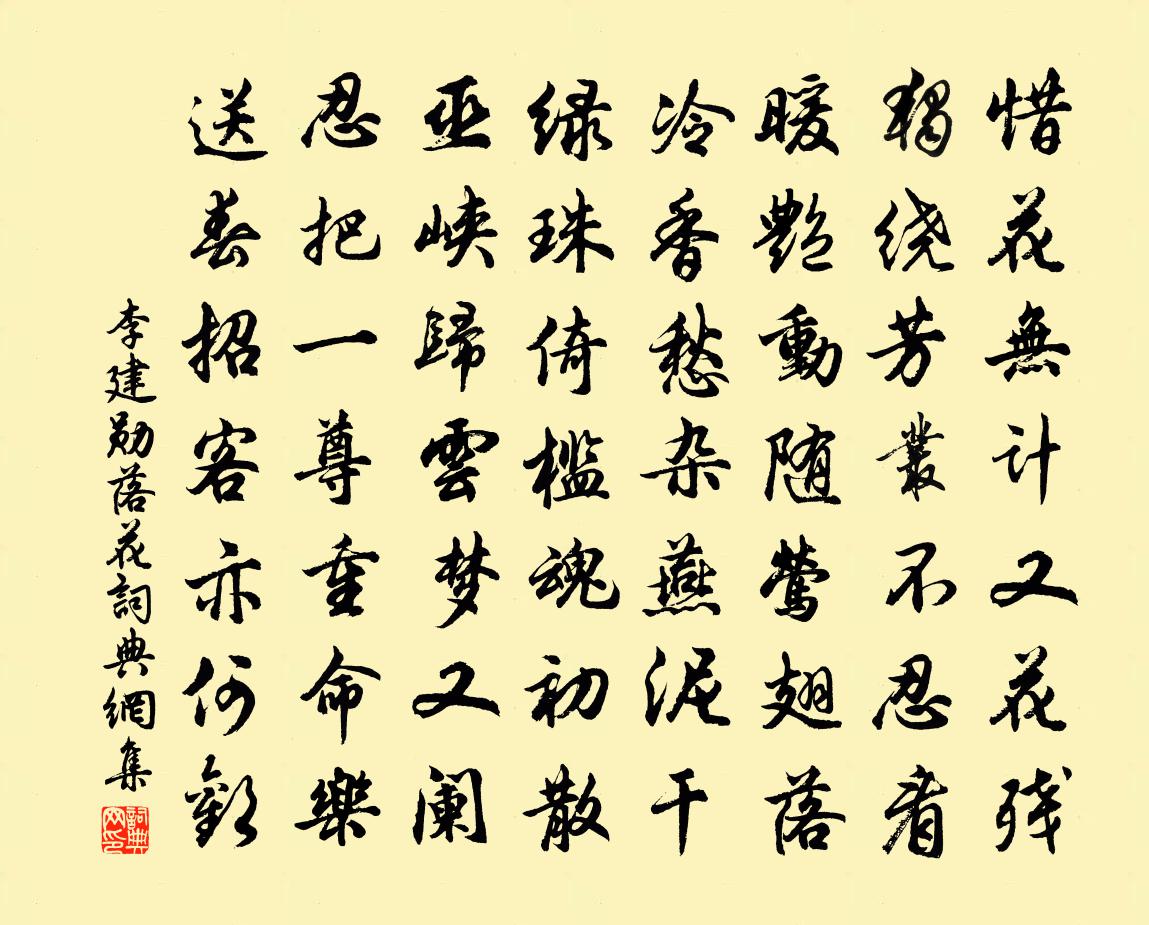 惜花無計又花残
独繞芳叢不忍看
暖艷動随鶯翅落
冷香愁杂燕泥干
緑珠倚槛魂初散
巫峡歸雲梦又阑
忍把一尊重命樂
送春招客亦何歡
李建勛落花詞典網集
詞典網印